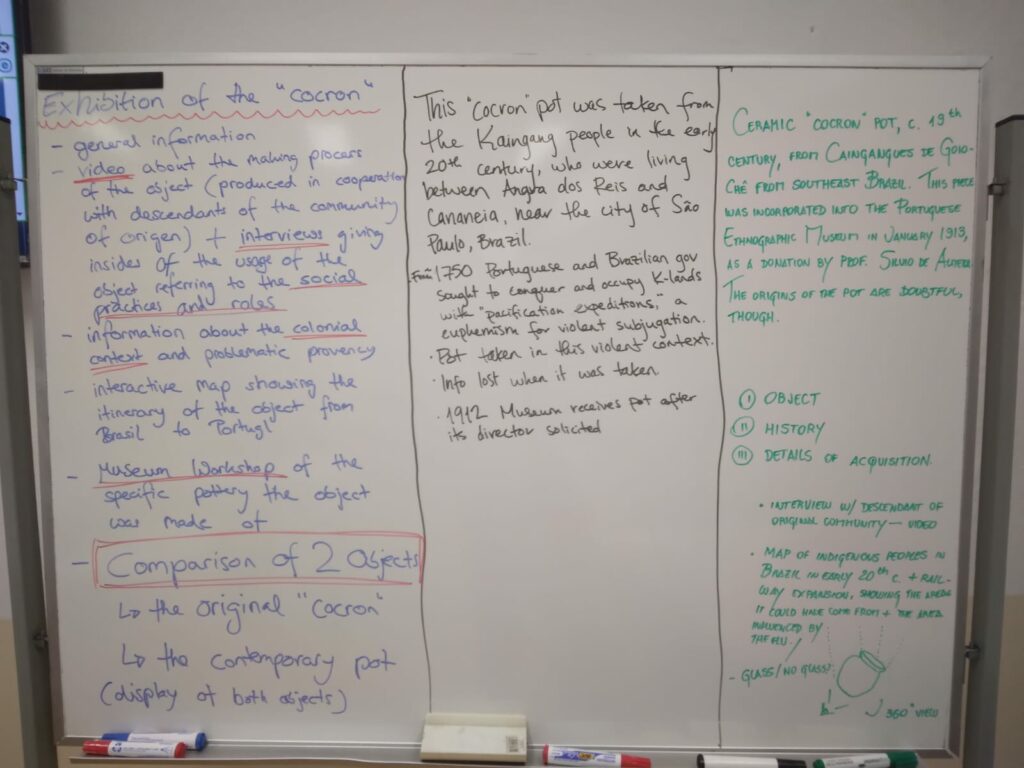 Exhibition of the "cocron"
- general information
- video about the making process
of the object (produced in cooperation
with descendants of the community
of origen) + interviews giving
insides of the usage of the
object referring to the social
practices and roles
- information about the colonial
context and problematic provency
- interactive map showing the
itinerary of the object from
Brasil to Portugl
- Museum Workshop of the
specific pottery the object
was made of
- Comparison of 2 Objects
↳ the original "Cocron"
↳ the contemporary pot
(display of both objects)
This "cocron" pot was taken from
the Kaingang people in the early
20th century, who were living
between Angra dos Reis and
Cananeia, near the city of São
Paulo, Brazil.
From 1750 Portuguese and Brazilian gov
sought to conquer and occupy K-lands
with "pacification expeditions," a
euphemism for violent subjugation.
· Pot taken in this violent context.
· Info lost when it was taken
· 1912 Museum receives pot after
its director solicited
CERAMIC "COCRON" POT, C. 19th
CENTURY, FROM CAINGANGUES DE
FROM SOUTHEAST BRAZIL. THIS PIECE
WAS INCORPORATED INTO THE PORTUGUESE
ETHNOGRAPHIC MUSEUM IN JANUARY 1913,
AS A DONATION BY PROF. SILVIO DE ALMEIDA.
THE ORIGINS OF THE POT ARE DOUBTFUL,
THOUGH.
I OBJECT
II HISTORY
III DETAILS OF ACQUISITION.
• INTERVIEW W/ DESCENDANT OF
ORIGINAL COMMUNITY — VIDEO
• MAP OF INDIGENOUS PEOPLES IN
BRAZIL IN EARLY 20th C. + RAIL-
WAY EXPANSION, SHOWING THE AREAS
IT COULD HAVE COME FROM + THE AREA
INFLUENCED BY
THE FLU.
- GLASS/NO GLASS?
360° VIEW